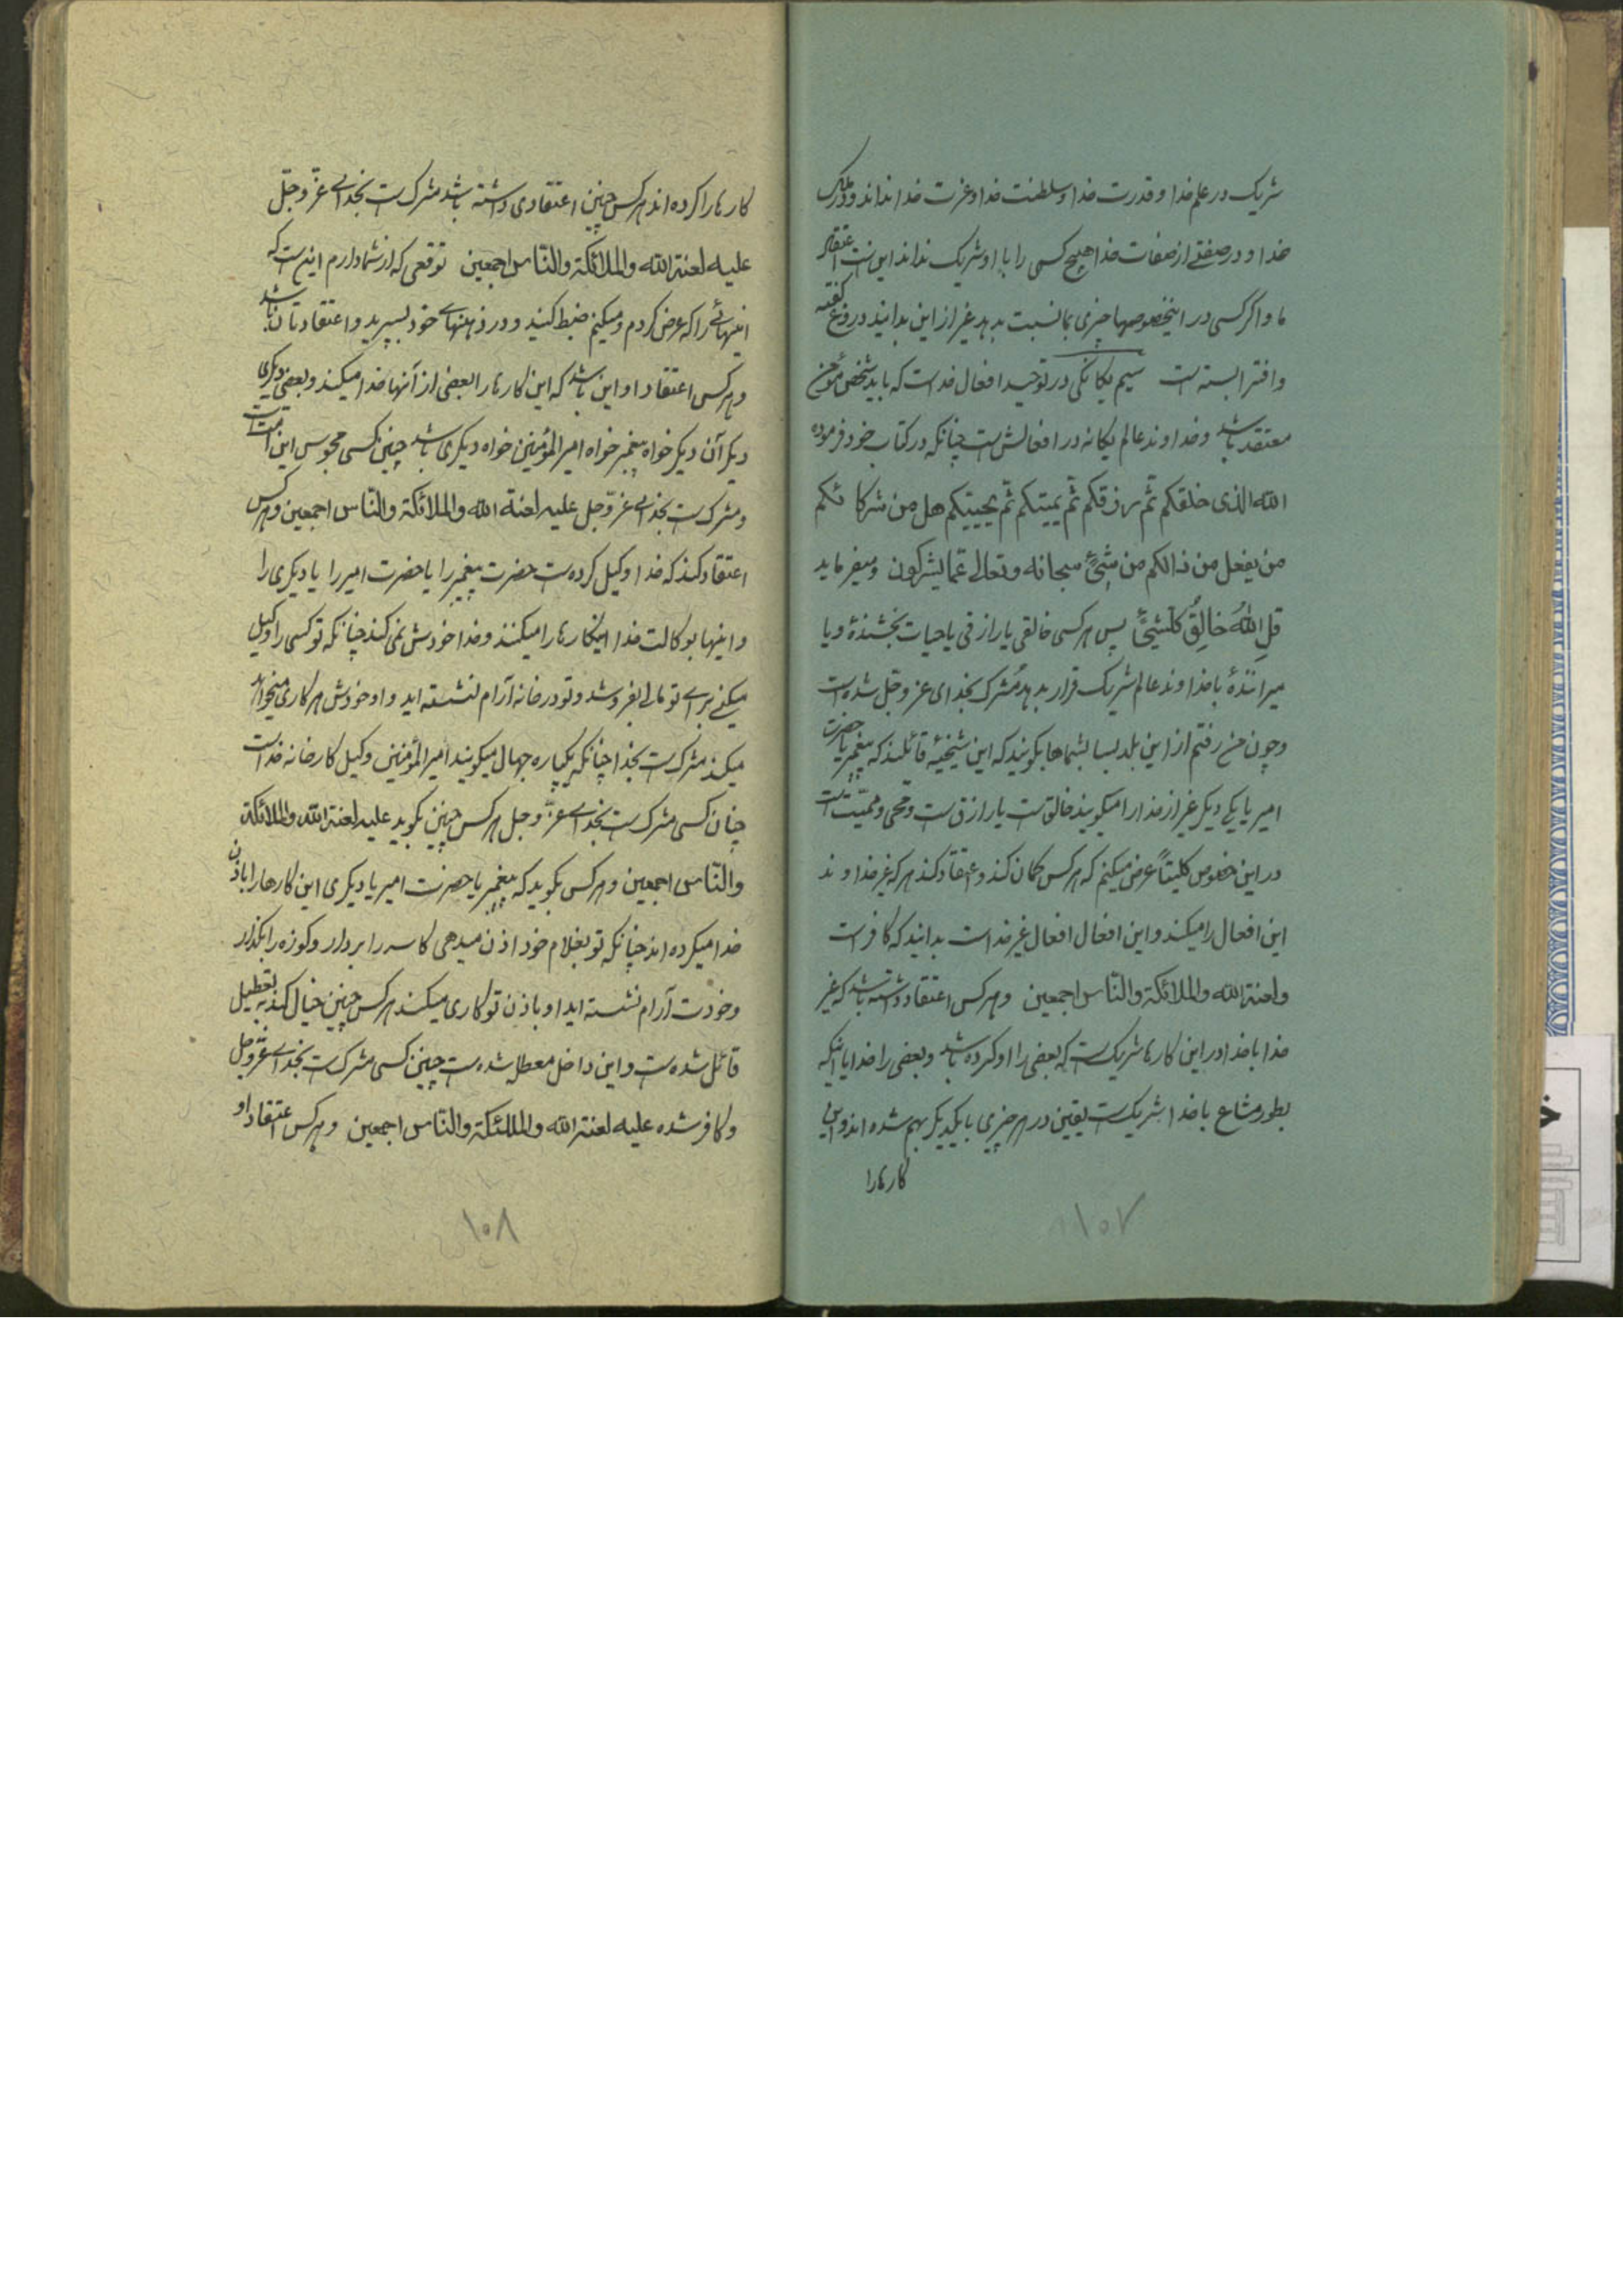 شریک در علم خدا و قدرت خدا و سلطنت خدا و عزت خدا نداند و در ملک
خدا و در صفتی از صفات خدا هیچ کسی را با او شریک نداند این است اعتقاد
ما و اگر کسی در اینخصوصها چیزی بما نسبت بدهد غیر از این بدانید دروغ گفته
و افترا بسته است سیم یگانگی در توحید افعال خداست که باید شخص مؤمن
معتقد باشد و خداوند عالم یگانه در افعالش است چنانکه در کتاب خود فرموده
الله الذی خلقکم ثم رزقکم ثم یمیتکم ثم یحییکم هل من شرکائکم
من یفعل من ذالکم من شیئ سبحانه وتعالی عما یشرکون و میفرماید
قل الله خالق کلشیئ پس هر کسی خالقی یا رازقی یا حیات بخشندهٔ و یا
میرانندهٔ با خداوند عالم شریک قرار بدهد مشرک بخدای عز و جل شده است
و چون من رفتم از این بلد بسا بشماها بگویند که این شیخیه قائلند که پیغمبر یا حضرت
امیر یا یکی دیگر غیر از خدا را میگویند خالق است یا رازق است و محیی و ممیت است
در این خصوص کلیتاً عرض میکنم که هر کس گمان کند و اعتقاد کند هر که غیر خداوند
این افعال را میکند و این افعال افعال غیر خداست بدانید که کافر است
ولعنة الله والملائکة والناس اجمعین و هر کس اعتقاد داشته باشد که غیر
خدا با خدا در این کارها شریک است که بعضی را او کرده باشد و بعضی را خدا یا اینکه
بطور مشاع با خدا شریک است یقین در هر چیزی با یکدیگر بهم شده اند و این
کارها را
۱۰۷
کارها را کرده اند هر کس چنین اعتقادی داشته باشد مشرک است بخدای عز و جل
علیه لعنة الله والملائکة والناس اجمعین توقعی که از شما دارم اینست که
اینهائی را که عرض کردم و میکنم ضبط کنید و در ذهنهای خود بسپرید و اعتقادتان باشد
و هر کس اعتقاد او این باشد که این کارها را بعضی از آنها خدا میکند و بعضی دیگری
دیگر آن دیگر خواه پیغمبر خواه امیرالمؤمنین خواه دیگری باشد چنین کسی مجوس این امت است
و مشرک است بخدای عز و جل علیه لعنة الله والملائکة والناس اجمعین و هر کس
اعتقاد کند که خدا وکیل کرده است حضرت پیغمبر را یا حضرت امیر را یا دیگری را
و اینها بوکالت خدا اینکارها را میکنند و خدا خودش نمی کند چنانکه تو کسی را وکیل
میکنی برای تو مالی بفروشد و تو در خانه آرام نشسته اید و او خودش هر کاری میخواهد
میکند مشرک است بخدا چنانکه یکپاره جهال میگویند امیرالمؤمنین وکیل کارخانه خداست
چنان کسی مشرک است بخدای عز و جل هر کس چنین بگوید علیه لعنة الله والملائکة
والناس اجمعین و هر کس بگوید که پیغمبر یا حضرت امیر یا دیگری این کارها را باذن
خدا میکرده اند چنانکه تو بغلام خود اذن میدهی کاسه را بردار و کوزه را بگذار
و خودت آرام نشسته اید او باذن تو کاری میکند هر کس چنین خیال کند به تعطیل
قائل شده است و این داخل معطله شده است چنین کسی مشرک است بخدای عز و جل
و کافر شده علیه لعنة الله والملائکة والناس اجمعین و هر کس اعتقاد او
۱۰۸